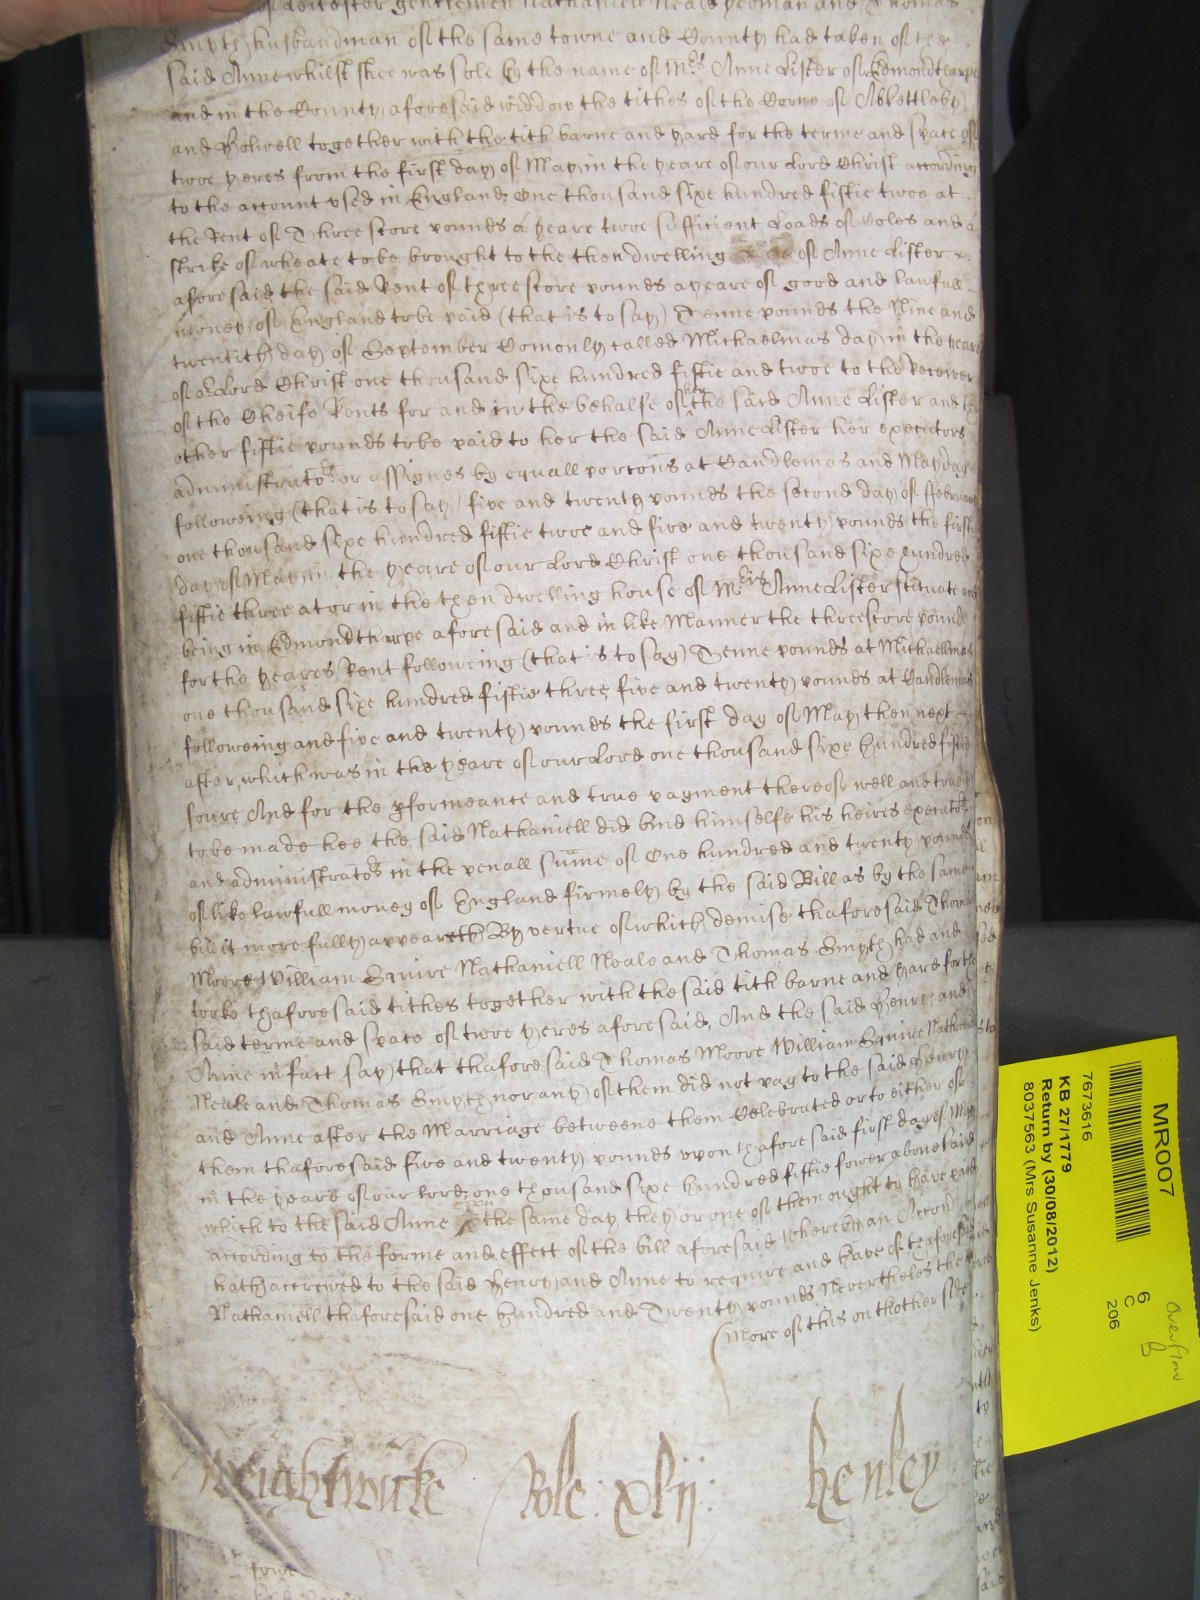 of Leicester gentlemen Nathaniell Neale yeoman and Thomas
Smyth husbandman of the same towne and County had taken of the
said Anne whilst shee was sole by the name of Mrs Anne Lister of Edmondtharpe
and in the County aforesaid widdow the tithes of the Corne of Abkettleby
and Holwell together with the tith barne and yard for the terme and space of
twoe yeres from the first day of May in the yeare of our Lord Christ according
to the account used in England One thousand sixe hundred fiftie twoe at
the Rent of Threescore pounds a yeare twoe sufficient Loads of Coles and a
strike of wheate to be brought to the then dwelling of Anne Lister
aforesaid the said Rent of threescore pounds a yeare of good and lawfull
money of England to be paid (that is to say) Tenne pounds the Nine and
twentith day of September Comonly called Michaelmas day in the yeare
of or Lord Christ one thousand sixe hundred fiftie and twoe to the Receiver
of the Cheife Rents for and in the behalfe of her the said Anne Lister and the
other fiftie pounds to be paid to her the said Anne Lister her executors
administrators or assignes by equall portons at Candlemas and Mayday
followeing (that is to say) five and twenty pounds the second day of ffebruary
one thousand sixe hundred fiftie twoe and five and twenty pounds the first
day of May in the yeare of our Lord Christ one thousand sixe hundred
fiftie three at or in the then dwelling house of Mris Anne Lister scituate and
being in Edmondtharpe aforesaid and in like Manner the threescore pounds
for the yeares Rent followeing (that is to say) Tenne pounds at Michaellmas
one thousand sixe hundred fiftie three, five and twenty pounds at Candlemas
followeing and five and twenty pounds the first day of May then next
after, which was in the yeare of our Lord one thousand sixe hundred fiftie
foure And for the pformeance and true payment thereof well and truely
to be made hee the said Nathaniell did bind himselfe his heires executors
and administrators in the penall sume of One hundred and twenty pounds
of like lawfull money of England firmely by the said Bill as by the same
bill it more fully appeareth By vertue of which demise thaforesaid Thomas
Moore William Squire Nathaniell Neale and Thomas Smyth had and
tooke thaforesaid tithes together with the said tith barne and yard for the
said terme and space of twoe yeres aforesaid, And the said Henry and
Anne in fact say that thaforesaid Thomas Moore William Squire Nathaniell
Neale and Thomas Smyth nor any of them did not pay to the said Henry
and Anne after the Marriage betweene them Celebrated or to either of
them thaforesaid five and twenty pounds upon thaforesaid first day of May
in the yeare of our lord one thousand sixe hundred fiftie fower abovesaid
which to the said Anne upon the same day they or one of them ought to have paid
according to the forme and effect of the bill aforesaid whereby an Accon
hath accrewed to the said Henry and Anne to require and have of thaforesaid
Nathaniell thaforesaid one hundred and Twenty pounds Nevertheles the
(More of this on thother side
Weightwicke Role: xlii: Henley
MR007
7673616
KB 27/1779
Return by (30/08/2012)
8037563 (Mrs Susanne Jenks)
6
C
206
Overflow
B